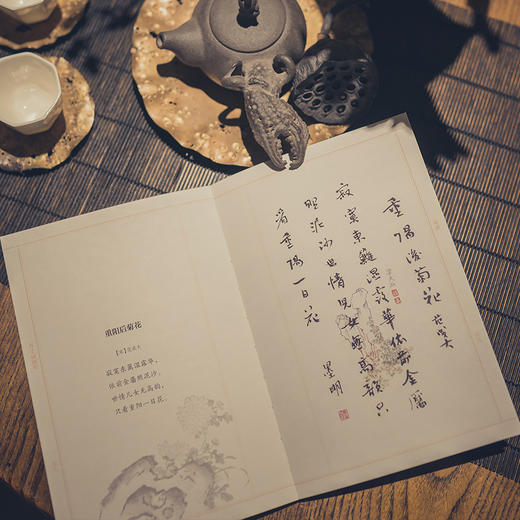 重阳后菊花
【宋】范成大
寂寞东篱湿露华，
依前金靥照泥沙。
世情儿女无高韵，
只看重阳一日花。
重陽後菊花 范成大
寂寞東籬湿露華依前金靨
照泥沙世情児女無高韻只
看重陽一日花
墨明